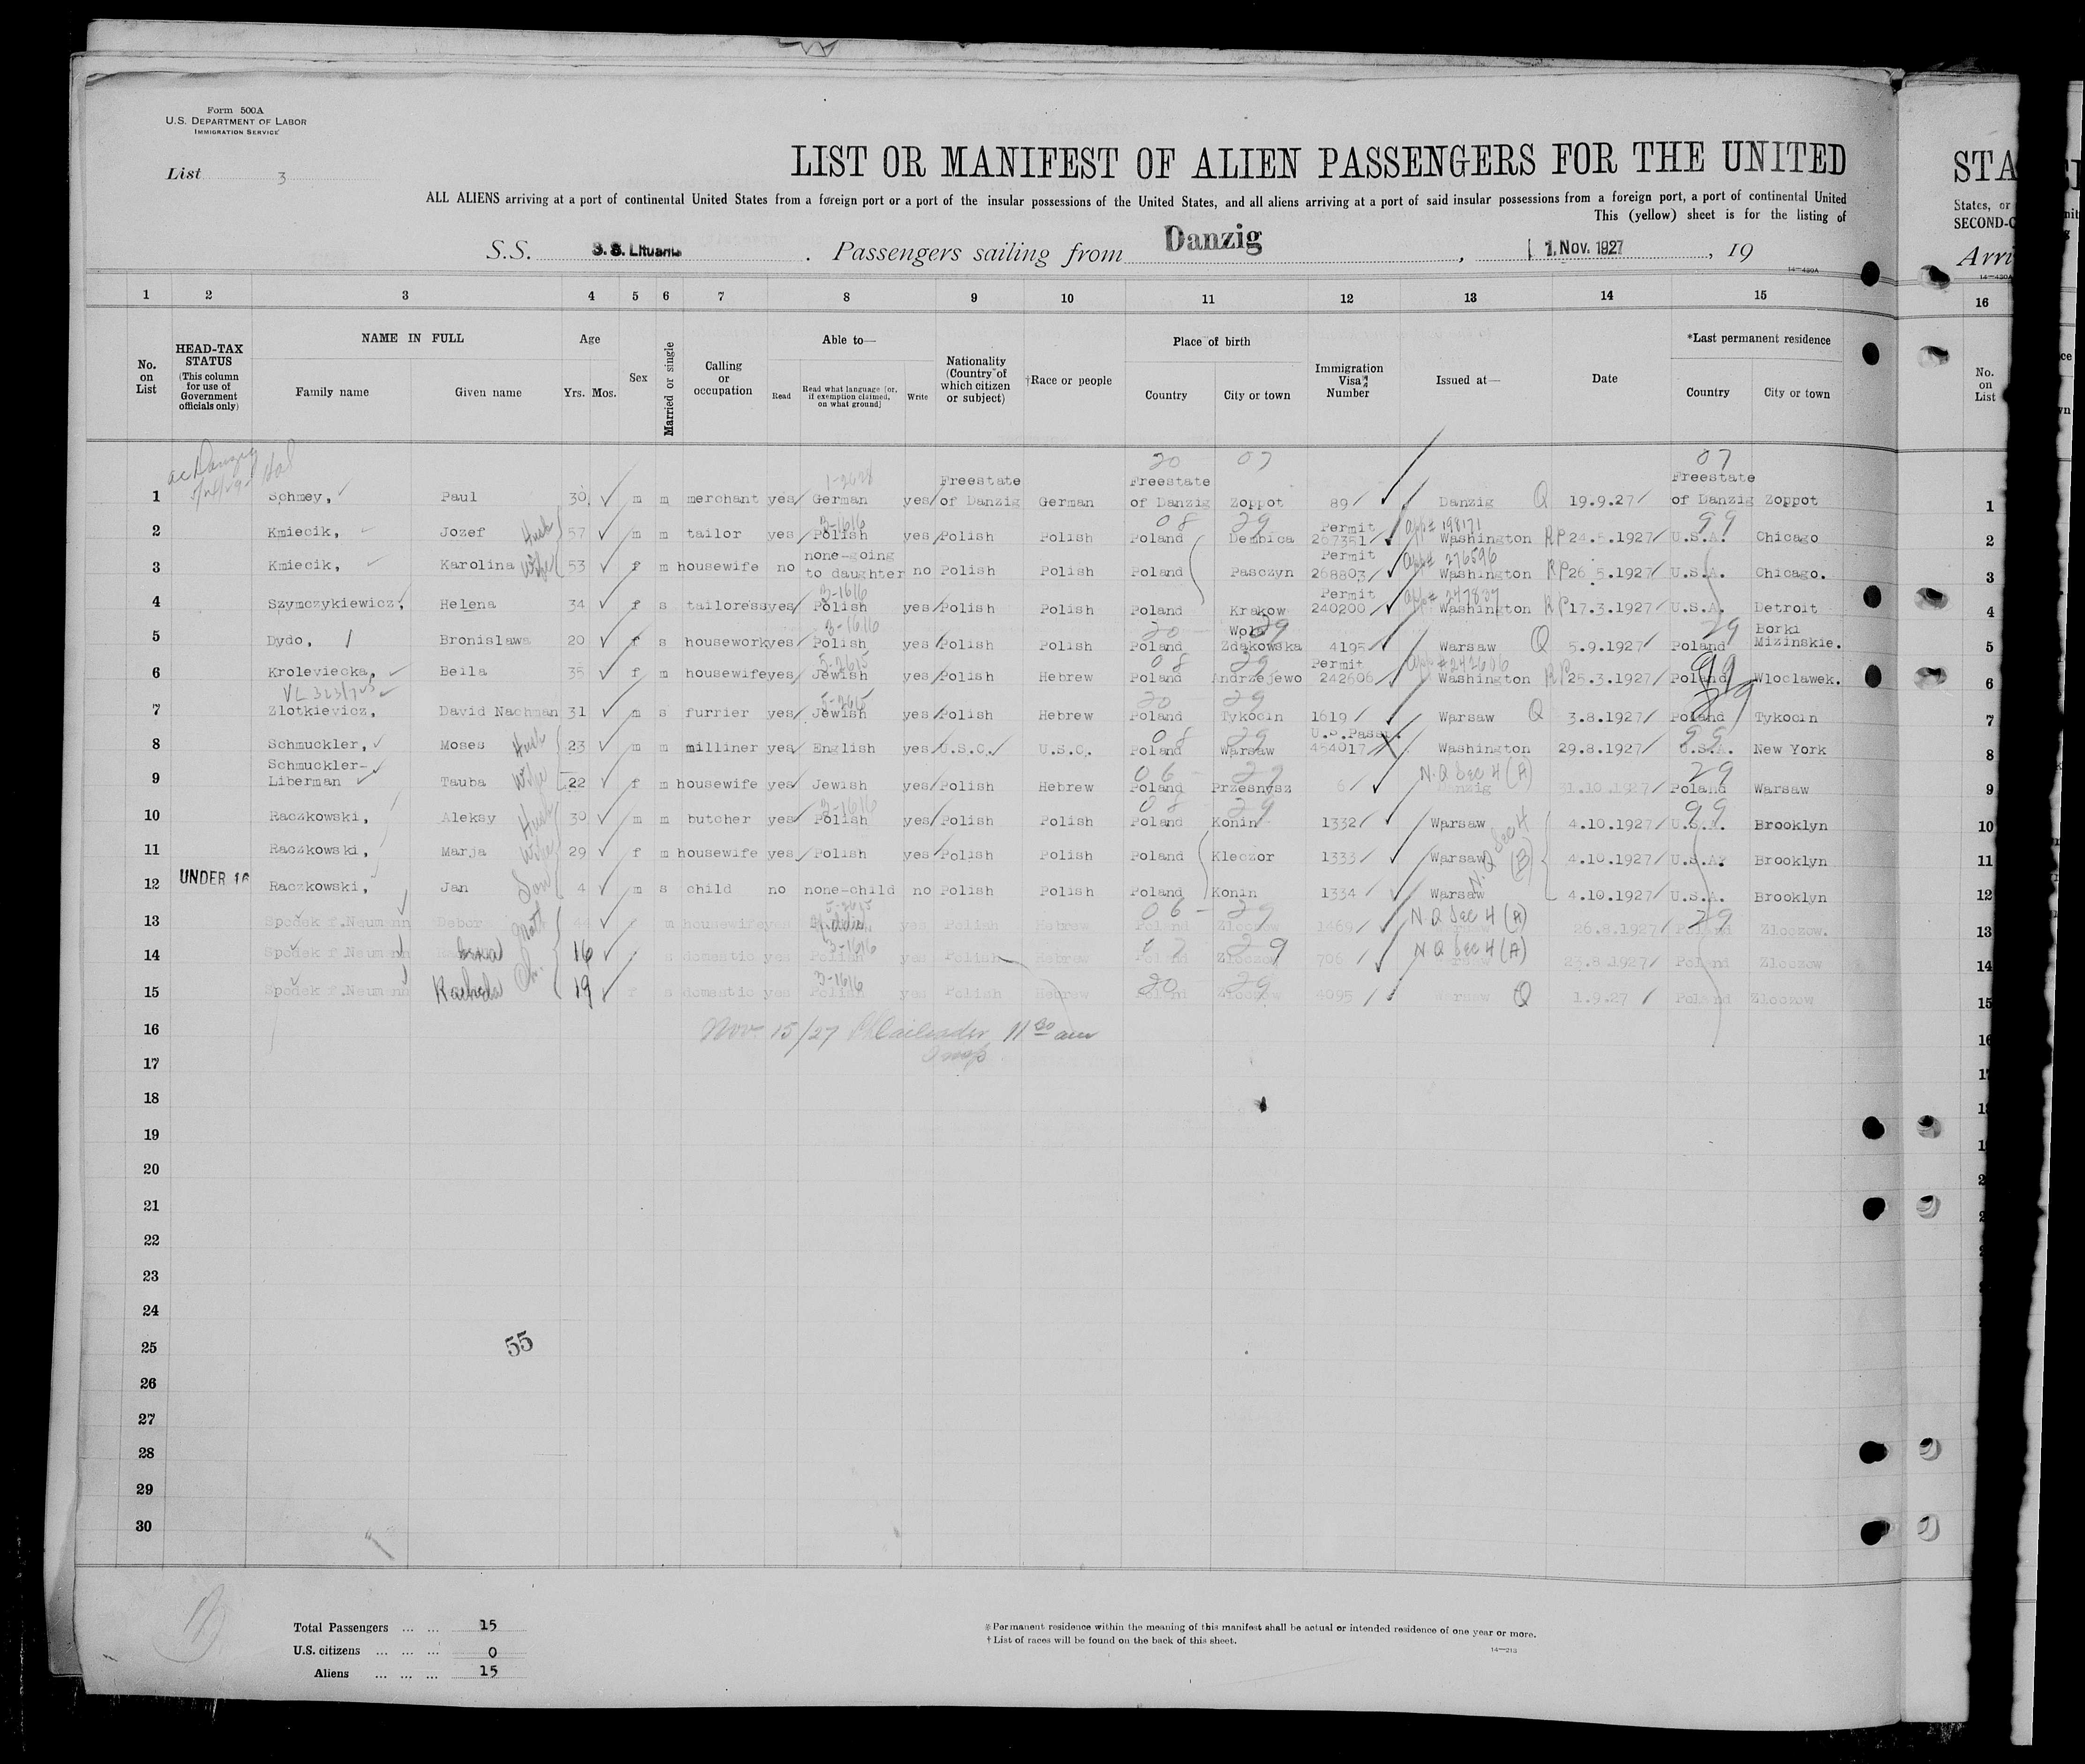 Form 500A
U.S. DEPARTMENT OF LABOR
IMMIGRATION SERVICE
List 3
LIST OR MANIFEST OF ALIEN PASSENGERS FOR THE UNITED
STA
ALL ALIENS arriving at a port of continental United States from a foreign port or a port of the insular possessions of the United States, and all aliens arriving at a port of said insular possessions from a foreign port, a port of continental United
States, or
This (yellow) sheet is for the listing of
SECOND-C
S.S. S. S. Lituania. Passengers sailing from Danzig, 1, Nov. 1927, 19
Arri
14—430A
1 2 3 4 5 6 7 8 9 10 11 12 13 14 15 16
No. on List
HEAD-TAX STATUS (This column for use of Government officials only)
NAME IN FULL
Family name Given name
Age
Yrs. Mos.
Sex
Married or single
Calling or occupation
Able to—
Read Read what language [or, if exemption claimed, on what ground] Write
Nationality (Country of which citizen or subject)
†Race or people
Place of birth
Country City or town
Immigration Visa Number
Issued at—
Date
*Last permanent residence
Country City or town
No. on List
20 07 07
1 Schmey, Paul 30 m m merchant yes German yes Freestate of Danzig German Freestate of Danzig Zoppot 89 Danzig Q 19.9.27 Freestate of Danzig Zoppot 1
3-1616 08 29 app# 198171 99
2 Kmiecik, Jozef Husb 57 m m tailor yes Polish yes Polish Polish Poland Dembica Permit 267351 Washington RP 24.5.1927 U.S.A. Chicago 2
app# 276596
3 Kmiecik, Karolina Wife 53 f m housewife no none-going to daughter no Polish Polish Poland Pasczyn Permit 268803 Washington RP 26.5.1927 U.S.A. Chicago. 3
3-1616 app# 247837
4 Szymczykiewicz, Helena 34 f s tailoress yes Polish yes Polish Polish Poland Krakow Permit 240200 Washington RP 17.3.1927 U.S.A. Detroit 4
3-1616 20 29 29
5 Dydo, Bronislawa 20 f s housework yes Polish yes Polish Polish Poland Wola Zdakowska 4195 Warsaw Q 5.9.1927 Poland Borki Mizinskie. 5
5-2615 08 29 app #242606 99
6 Kroleviecka, Bella 35 f m housewife yes Jewish yes Polish Hebrew Poland Andrzejewo Permit 242606 Washington RP 25.3.1927 Poland Wloclawek. 6
5-2615 20 29 29
7 Zlotkievicz, David Nachman 31 m s furrier yes Jewish yes Polish Hebrew Poland Tykocin 1619 Warsaw Q 3.8.1927 Poland Tykocin 7
08 29 99
8 Schmuckler, Moses Husb 23 m m milliner yes English yes U.S.C. U.S.C. Poland Warsaw U.S.Pass. 454017 Washington 29.8.1927 U.S.A. New York 8
06 29 N.Q Sec 4 (A) 29
9 Schmuckler-Liberman Tauba Wife 22 f m housewife yes Jewish yes Polish Hebrew Poland Przesnysz 6 Danzig 31.10.1927 Poland Warsaw 9
3-1616 08 29 99
10 Raczkowski, Aleksy Husb 30 m m butcher yes Polish yes Polish Polish Poland Konin 1332 Warsaw 4.10.1927 U.S.A. Brooklyn 10
N.Q Sec 4 (B)
11 Raczkowski, Marja Wife 29 f m housewife yes Polish yes Polish Polish Poland Kleczor 1333 Warsaw 4.10.1927 U.S.A. Brooklyn 11
12 UNDER 16 Raczkowski, Jan Son 4 m s child no none-child no Polish Polish Poland Konin 1334 Warsaw 4.10.1927 U.S.A. Brooklyn 12
5-2615 06 29 29
13 Spodek f.Neumann Debor 44 f m housewife yes yes Polish Hebrew Poland Zloczow 1469 N.Q Sec 4 (A) 26.8.1927 Poland Zloczow. 13
3-1616 29
14 Spodek f.Neumann 16 s domestic yes Polish yes Polish Hebrew Poland Zloczow 706 N Q Sec 4 (A) 23.8.1927 Poland Zloczow 14
3-1616 20 29
15 Spodek f.Neumann 19 f s domestic yes Polish yes Polish Hebrew Poland Zloczow 4095 Warsaw Q 1.9.27 Poland Zloczow 15
16 Nov 15/27 11 30 am 16
Insp
17
18
19
20
21
22
23
24
25
26
27
28
29
30
55
Total Passengers ... ... 15
U.S. citizens ... ... ... 0
Aliens ... ... ... 15
*Permanent residence within the meaning of this manifest shall be actual or intended residence of one year or more.
†List of races will be found on the back of this sheet.
14—213